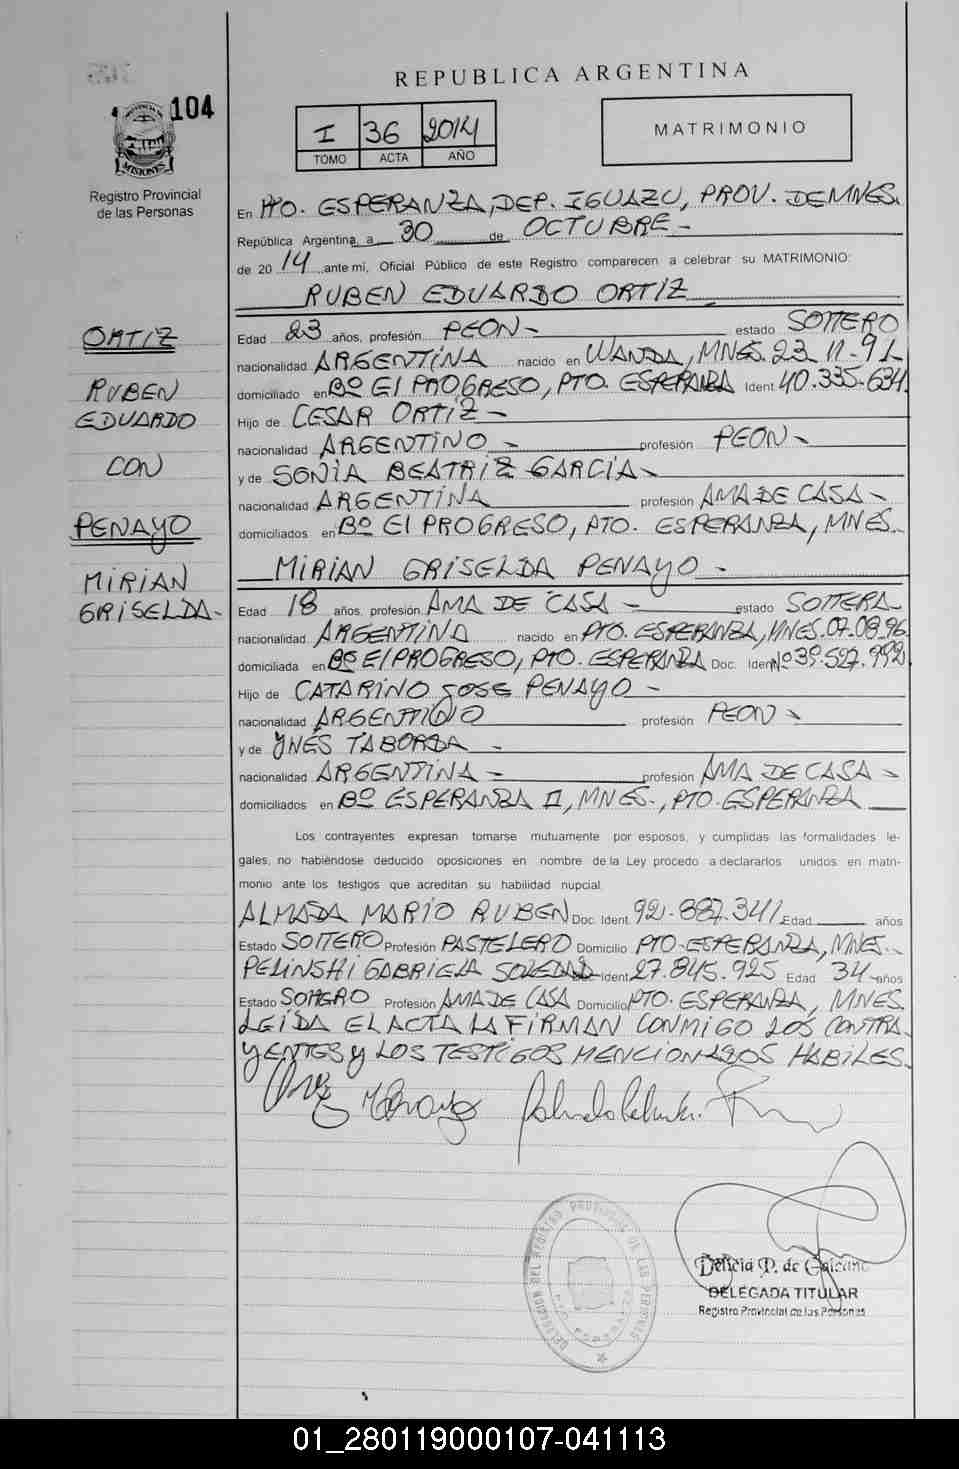 REPUBLICA ARGENTINA
104
MISIONES
Registro Provincial
de las Personas
I 36 2014
TOMO ACTA AÑO
MATRIMONIO
En PTO. ESPERANZA, DEP. IGUAZU, PROV. DE MNES.
República Argentina, a 30 de OCTUBRE -
de 2014 ante mí, Oficial Público de este Registro comparecen a celebrar su MATRIMONIO:
RUBEN EDUARDO ORTIZ
ORTIZ
RUBEN
EDUARDO
CON
PENAYO
MIRIAN
GRISELDA-
Edad 23 años, profesión PEON - estado SOLTERO
nacionalidad ARGENTINA nacido en WANDA, MNES. 23-11-91-
domiciliado en Bº El PROGRESO, PTO. ESPERANZA Ident. 40.335.634
Hijo de CESAR ORTIZ -
nacionalidad ARGENTINO - profesión PEON -
y de SONIA BEATRIZ GARCIA -
nacionalidad ARGENTINA profesión AMA DE CASA -
domiciliados en Bº El PROGRESO, PTO. ESPERANZA, MNES.
MIRIAN GRISELDA PENAYO -
Edad 18 años, profesión AMA DE CASA - estado SOLTERA-
nacionalidad ARGENTINA nacido en PTO. ESPERANZA, MNES. 07.08.96.
domiciliada en Bº El PROGRESO, PTO. ESPERANZA Doc. Ident. Nº 39.527.992
Hijo de CATARINO JOSE PENAYO -
nacionalidad ARGENTINO profesión PEON -
y de YNES TABORDA -
nacionalidad ARGENTINA - profesión AMA DE CASA -
domiciliados en Bº ESPERANZA II, MNES., PTO. ESPERANZA
Los contrayentes expresan tomarse mutuamente por esposos, y cumplidas las formalidades le-
gales, no habiéndose deducido oposiciones en nombre de la Ley procedo a declararlos unidos en matri-
monio ante los testigos que acreditan su habilidad nupcial.
ALMADA MARIO RUBEN Doc. Ident. 92.887.341 Edad años
Estado SOLTERO Profesión PASTELERO Domicilio PTO. ESPERANZA, MNES.-
PELINSHI GABRIELA SOLEDAD Doc. Ident. 27.845.925 Edad 34 años
Estado SOLTERO Profesión AMA DE CASA Domicilio PTO. ESPERANZA, MNES.
LEIDA EL ACTA LA FIRMAN CONMIGO LOS CONTRA
YENTES y LOS TESTIGOS MENCIONADOS HABILES.
DELEGACION DEL REGISTRO PROVINCIAL DE LAS PERSONAS
PTO. ESPERANZA
Delicia P. de
DELEGADA TITULAR
Registro Provincial de las Personas
01_280119000107-041113